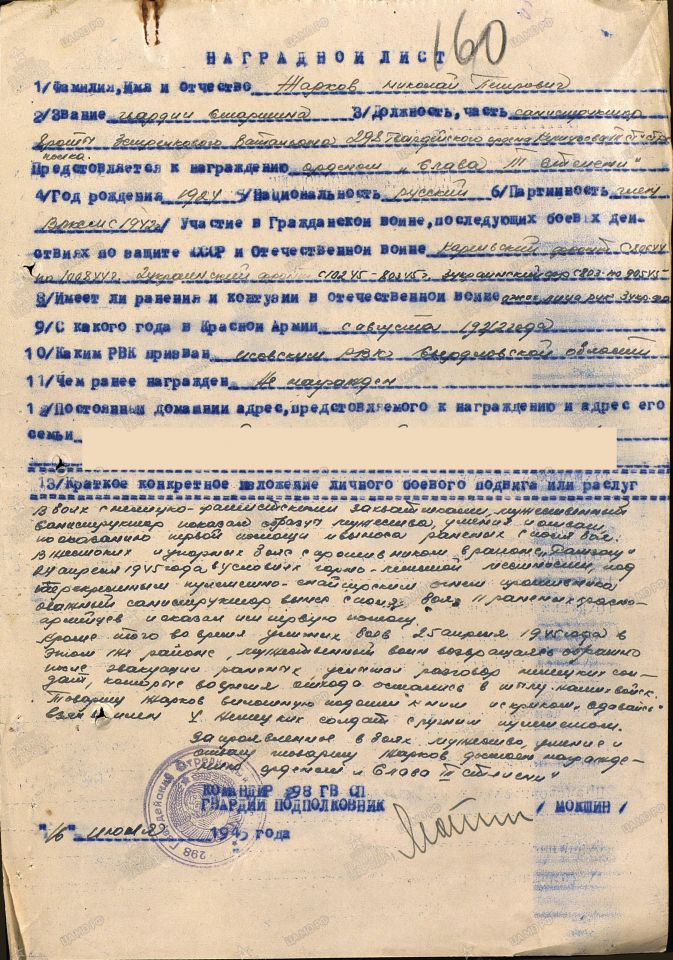 160
НАГРАДНОЙ ЛИСТ
1/Фамилия,Имя и Отчество Жарков Николай Петрович
2/Звание гвардии старшина 3/Должность,часть санинструктор
роты Стрелкового Батальона 298 Гвардейского
полка.
Предстовляется к награждению орденом „Слава III степени"
4/Год рождения 1924 5/Национальность русский 6/Партийность член
ВЛКСМ с 1942 7/ Участие в Гражданской войне,последующих боевых дей-
ствиях по защите СССР и Отечественной войне Карельский фронт
Украинский фронт с 10245-80345г. 3 украинский фр с 803 по 90545
8/Имеет ли ранения и контузии в отечественной войне
9/С какого года в Красной Армии с августа 1942 года
10/Каким РВК призван Исовским РВК Свердловской области
11/Чем ранее награжден Не награжден
12/Постоянный домашний адрес,предстовляемого к награждению и адрес его
семьи
13/Краткое конкретное изложение личного боевого подвига или заслуг
В боях с немецко-фашистскими захватчиками, мужественный
санинструктор показал образец мужества, умения и отваги
по оказанию первой помощи и выноса раненых с поля боя.
В жестоких и упорных боях с противником в районе
24 апреля 1945 года в условиях горно-лесистой местности, под
перекрестным пулеметно-снайперским огнем противника
отважный санинструктор вынес с поля боя 11 раненых красно-
армейцев и оказал им первую помощь.
Кроме того во время боев 25 апреля 1945 года в
этом же районе, мужественный воин возвращаясь обратно
после эвакуации раненых услышал разговор немецких сол-
дат, которые во время отхода остались в тылу наших войск.
Товарищ Жарков подошел к ним и с криком „сдавайсь"
взял в плен 4 Немецких солдат с ручным пулеметом.
За проявленное в боях мужество, умение и
отвагу товарищ Жарков достоин награжде-
ния орденом „Слава III степени"
КОМАНДИР 298 ГВ СП
ГВАРДИИ ПОДПОЛКОВНИК / МОКШИН /
"16" июня 1945 года